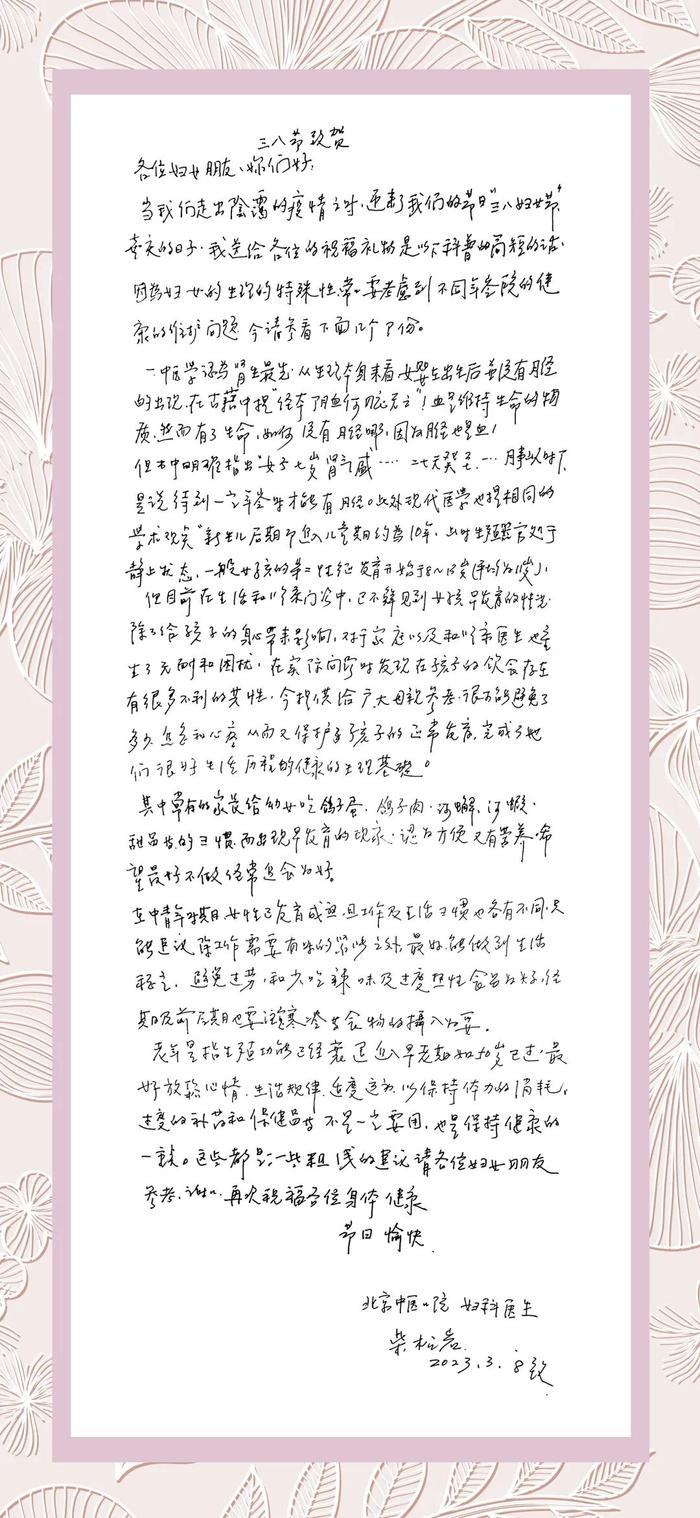 三八节致贺
各位妇女朋友、你们好:
当我们走出阴霾的疫情之时,迎来了我们的节日“三八妇女节”
的日子.我送给各位的祝福礼物是以下科普的简短的话.
因为妇女的生理的特殊性,常要考虑到不同年龄段的健
康的维护问题.今请参看下面几个部份。
一中医学认为肾生最先.从生理本身来看女婴在出生后并没有月经
的出现.在古籍中提“经本阴血何脏无之”!血是维持生命的物
质.然而有了生命.如何没有月经哪,因为月经也是血!
但书中明确指出“女子七岁肾气盛……二七天癸至…月事以时下
是说待到一定年龄时才能有月经。此外现代医学也提相同的
学术观点“新生儿后期即进入儿童期约为10年.此时生殖器官处于
静止状态,一般女孩的第二性征发育开始于8~
但目前在生活和临床门诊中,已不鲜见到女孩早发育的情况.
除了给孩子的身心带来影响,对于家庭以及和临床医生也产
生了无耐和困扰,在实际问诊时发现在孩子的饮食存在
有很多不利的共性,今提供给广大母亲参考.很可能避免了
多少焦急和心疼 从而又保护了孩子的正常发育,完成了她
们很好生活历程的健康的生理基础。
其中常有的家长给幼女吃鸽子蛋、鸽子肉、河蟹、河虾、
甜品等的习惯.而出现早发育的现象.认为方便又有营养.希
望最好不做经常进食为好。
在中青年时期女性已发育成熟.且工作及生活习惯也各有不同.只
能建议除工作需要有的紧张之外,最好能做到生活
稳定、避免过劳,和少吃辣味及过度热性食品为好,经
期及前后期也要避寒冷等食物的摄入为要.
老年是指生殖功能已经衰退进入早老期如50岁已过.最
好放松心情.生活规律.适度运动.以保持体力的消耗,
过度的补药和保健品等不是一定要用,也是保持健康的
一环。这些都是一些粗浅的建议请各位妇女朋友
参考.谢谢.再次祝福各位身体健康
节日愉快.
北京中医医院 妇科医生
柴松岩
2023.3.8致